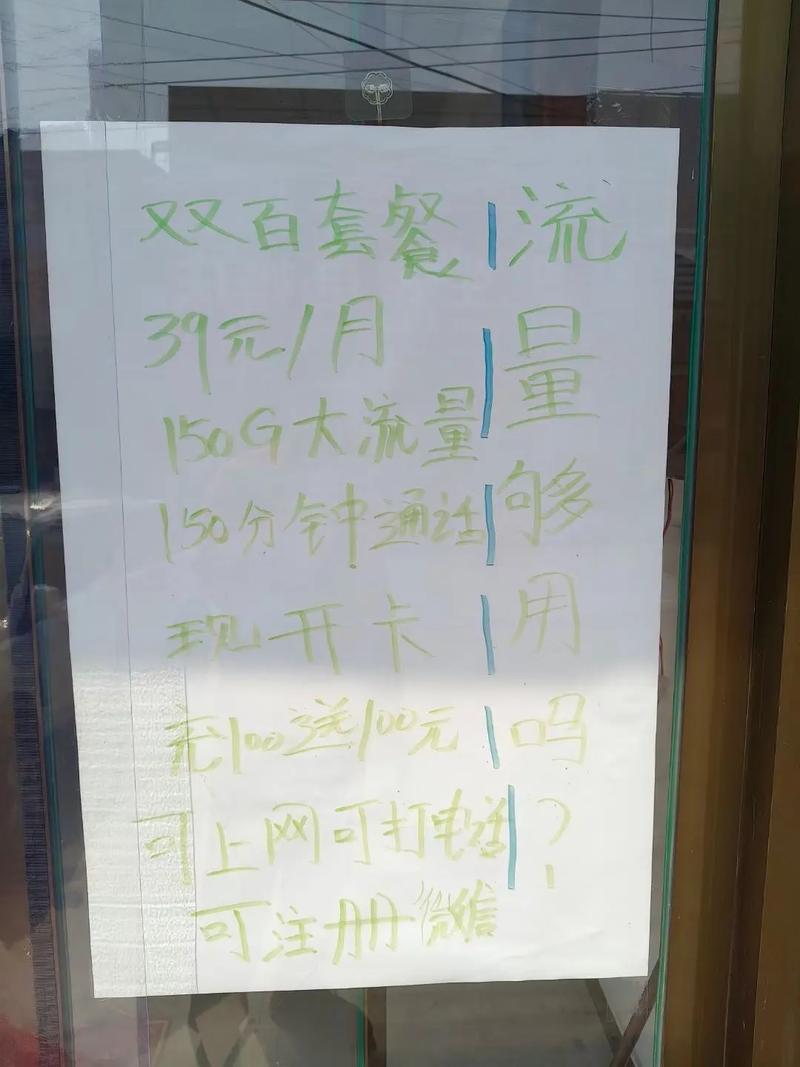 双百套餐
39元/月
150G大流量
150分钟通话
现开卡
充100送100元
可上网可打电话
可注册微信
流量够用吗?